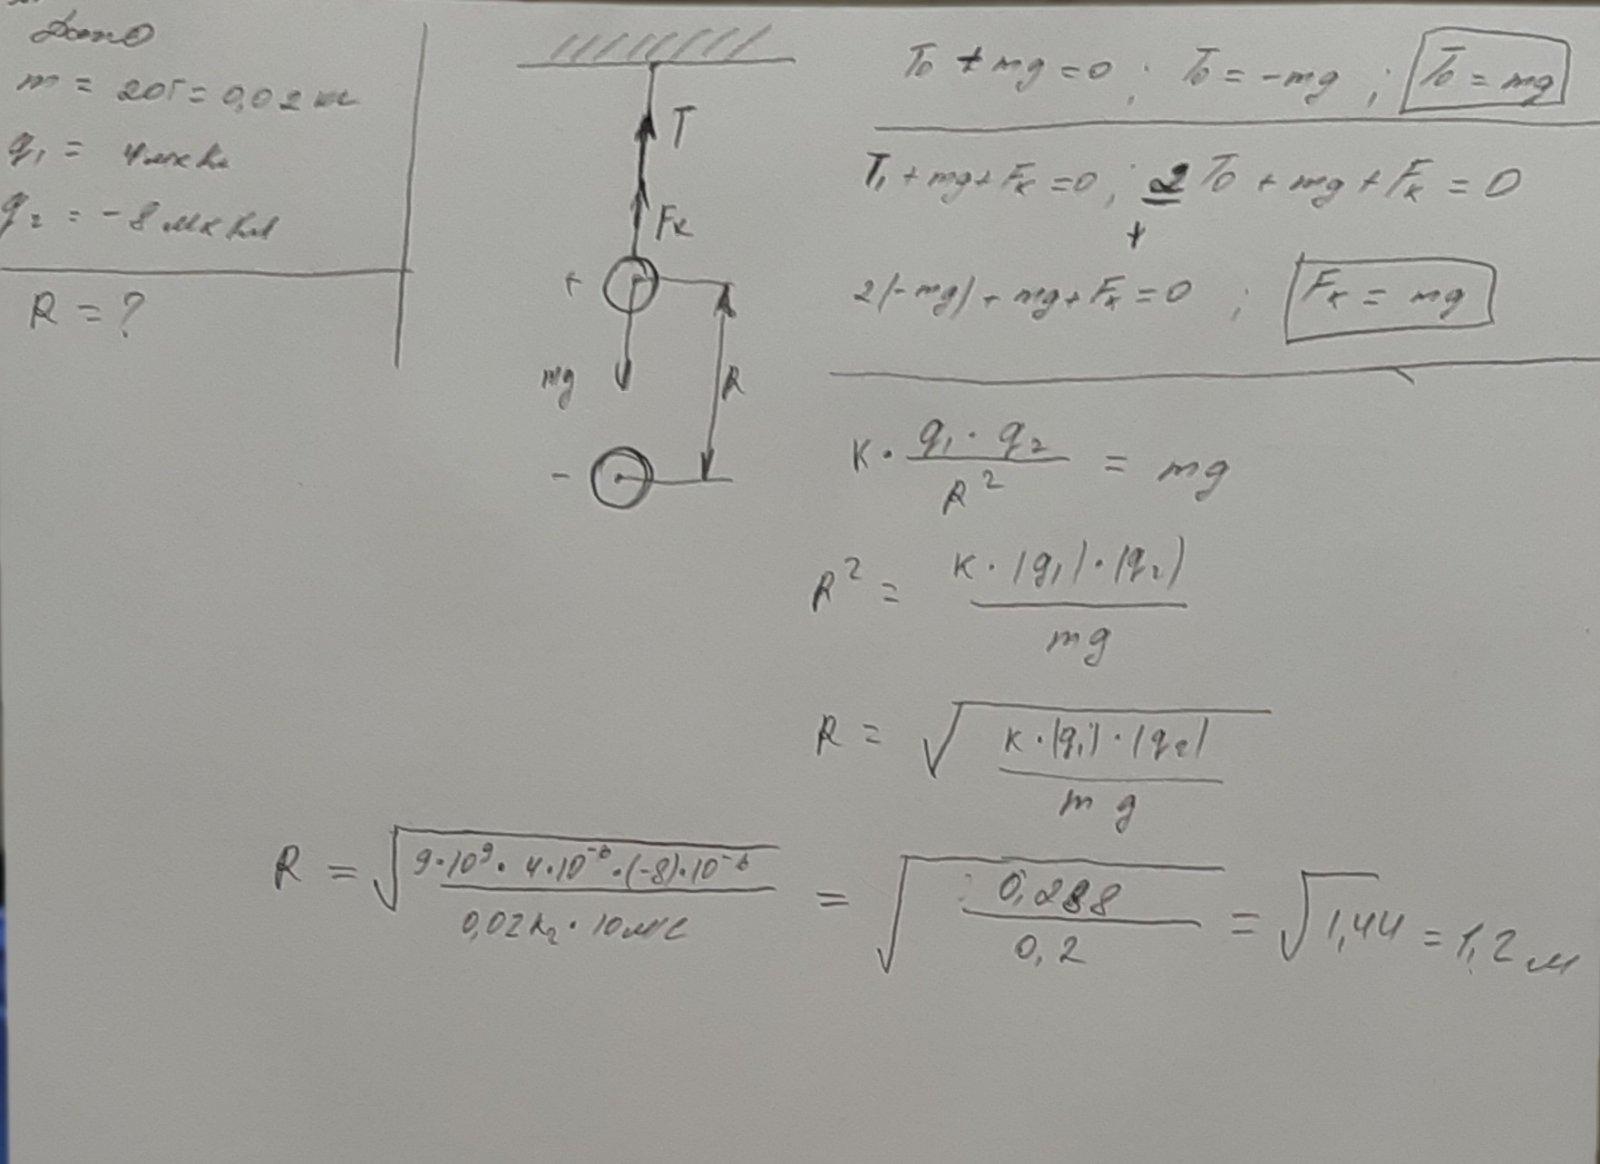 Дано
m = 20г = 0,02 кг
q₁ = 4мкКл
q₂ = -8 мкКл
R = ?
T
Fк
+
mg
R
-
T₀ + mg = 0 ; T₀ = -mg ; T₀ = mg
T₁ + mg + Fк = 0 ; 2 T₀ + mg + Fк = 0
+
2(-mg) + mg + Fк = 0 ; Fк = mg
K · q₁ · q₂ / R² = mg
R² = K · |q₁| · |q₂| / mg
R = √(K · |q₁| · |q₂| / mg)
R = √(9·10⁹ · 4·10⁻⁶ · (-8)·10⁻⁶ / 0,02кг · 10м/с) = √(0,288 / 0,2) = √1,44 = 1,2 м